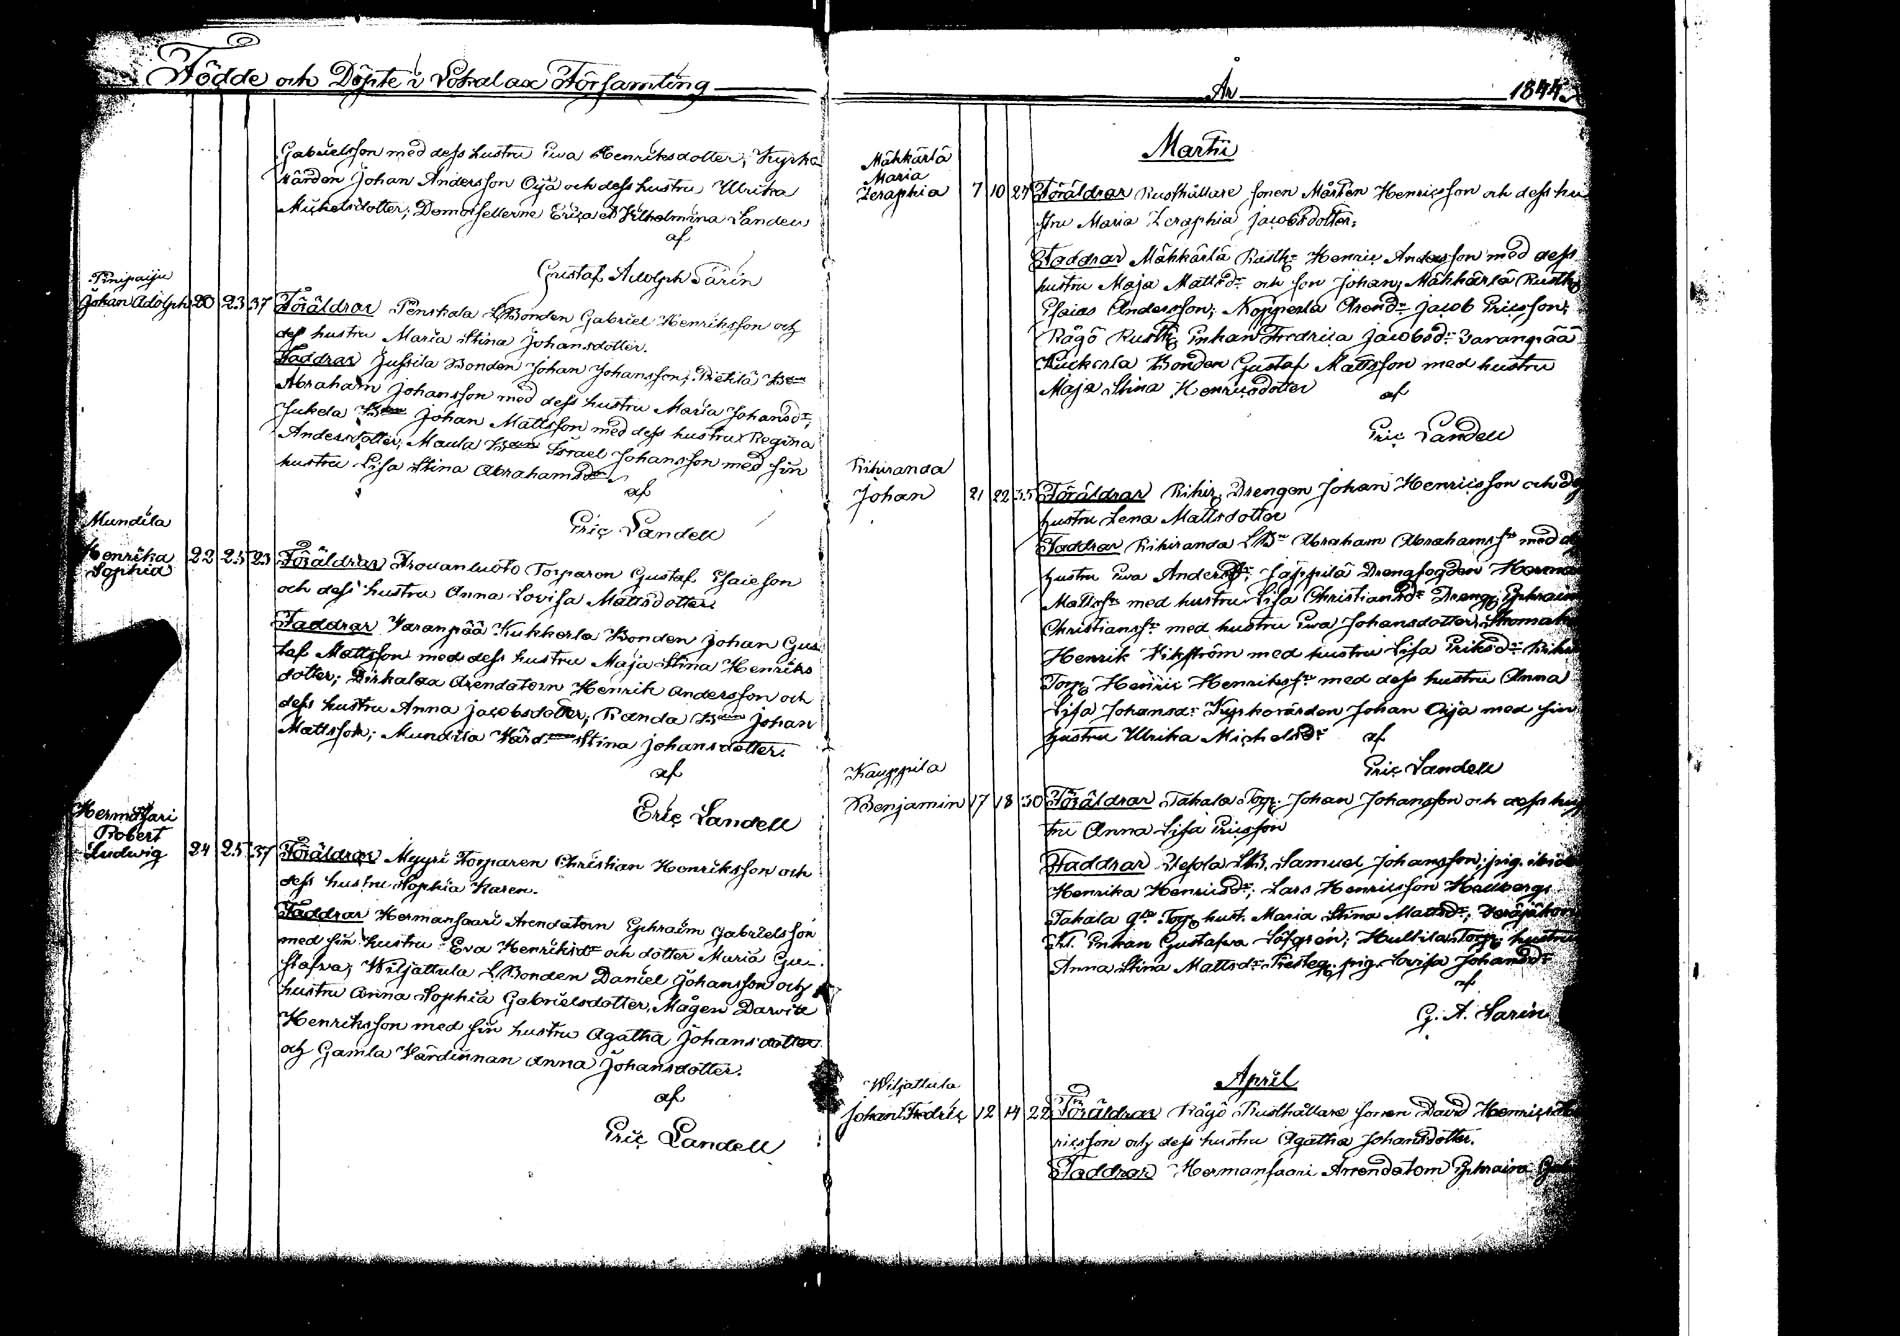 Födde och Döpte i Lokalax Församling
Gabrielsson med dess hustru Ewa Henriksdotter; Kyrko
värden Johan Andersson Oija och dess hustru Ulrika
Michelsdotter; Demoisellerne Erica et Wilhelmina Landell
af
Gustaf Adolph Sarin
Pinipaiju
Johan Adolph 20 23 37 Föräldrar Penskala LBonden Gabriel Henriksson och
dess hustru Maria Stina Johansdotter.
Faddrar Jussila Bonden Johan Johansson;
Abraham Johansson med dess hustru Maria Johansdr;
Jukela Johan Mattsson med dess hustru Regina
Andersdotter; Maula Israel Johansson med sin
hustru Lisa Stina Abrahamsdr
af
Eric Landell
Mundila
Henrika
Sophia 22 25 23 Föräldrar Torparen Gustaf Esaieson
och dess hustru Anna Lovisa Mattsdotter.
Faddrar Varanpää Kukkerla Bonden Johan Gus
taf Mattsson med dess hustru Maja Stina Henriks
dotter; Arendatorn Henrik Andersson och
dess hustru Anna Jacobsdotter; Randa Johan
Mattsson; Mundila Stina Johansdotter.
af
Eric Landell
Hermansari
Robert
Ludwig 24 25 37 Föräldrar Myyri Torparen Christian Henriksson och
dess hustru Sophia Karen.
Faddrar Hermansaari Arendatorn Ephraim Gabrielsson
med sin hustru Eva Henriksdr och dotter Maria Gu-
stafva; Wiljattula LBonden Daniel Johansson och
hustru Anna Sophia Gabrielsdotter, Mågen
Henriksson med sin hustru Agatha Johansdotter
och Gamla Värdinnan Anna Johansdotter.
af
Eric Landell
År 1844
Martii
Mähkärlä
Maria
Zeraphia 7 10 27 Föräldrar Rusthållare sonen Mårten Henricsson och dess hu
stru Maria Zeraphia Jacobsdotter.
Faddrar Mähkärlä Rusth. Henric Andersson med dess
hustru Maja Mattsdr och son Johan; Mähkärlä Rusth
Esaias Andersson; Arendr Jacob Ericsson;
Rågö Rusth Enkan Fredrica Jacobsdr Varanpää
Kuckerla Bonden Gustaf Mattsson med hustru
Maja Stina Henricsdotter af
Eric Landell
Rihiranda
Johan 21 22 35 Föräldrar Rihir. Drengen Johan Henricsson och
hustru Lena Mattsdotter
Faddrar Rihiranda LBn Abraham Abrahamssn med
hustru Ewa Andersdr; Jäppilä
Mattssn med hustru Lisa Christiansdr Dreng. Ephraim
Christianssn med hustru Ewa Johansdotter;
Henrik Wikström med hustru Lisa Eriksdr
Torp. Henric Henrikssn med dess hustru Anna
Lisa Johansdr Kyrkovärden Johan Oija med sin
hustru Ulrika Michelsdr af
Eric Landell
Kauppila
Benjamin 17 18 30 Föräldrar Tahala Torp. Johan Johansson och dess hus
tru Anna Lisa Ericsson
Faddrar LB. Samuel Johansson; pig.
Henrika Henricsdr; Lars Henricsson Hallberg
Tahala Torp. hust. Maria Stina Mattsdr;
Enkan Gustafva Löfgren; Torp. hustru
Anna Stina Mattsdr pig. Lovisa Johansdr
af
G. A. Sarin
April
Wiljattula
Johan Fredric 12 14 22 Föräldrar Rågö Rusthållare sonen David
ricsson och dess hustru Agatha Johansdotter.
Faddrar Hermansaari Arrendatorn Ephraim